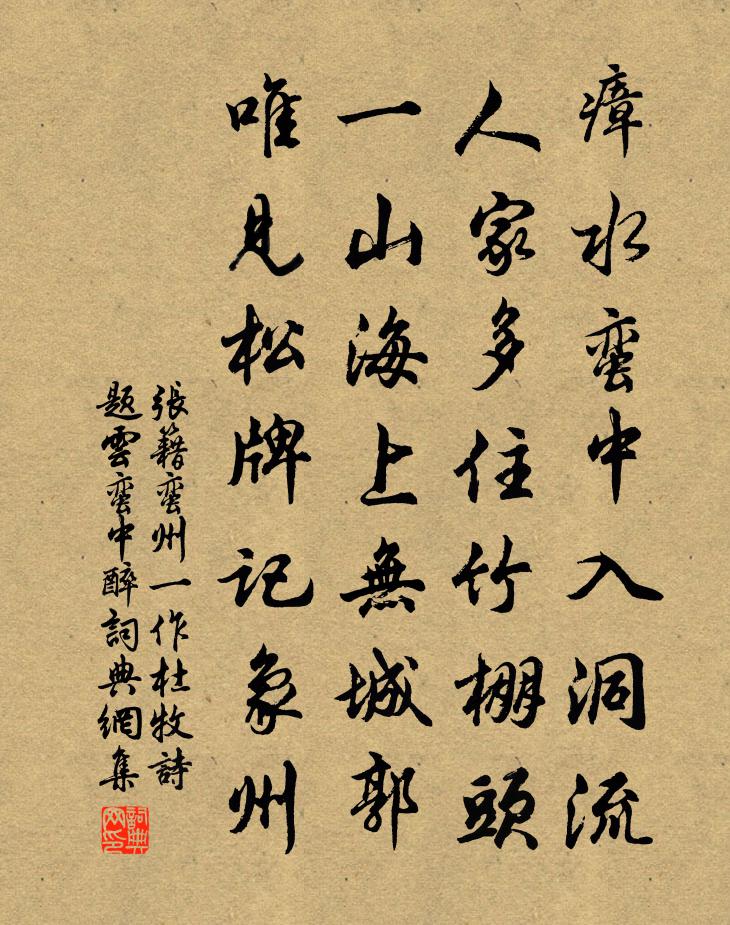 瘴水蛮中入洞流
人家多住竹棚頭
一山海上無城郭
唯見松牌記象州
張籍蛮州一作杜牧詩
題雲蛮中醉詞典網集
詞典
网印